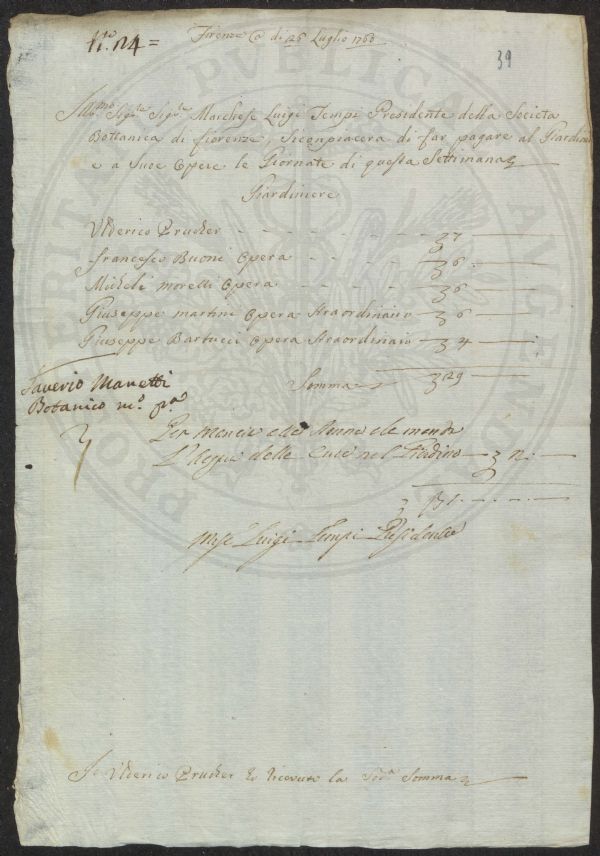 N.º 24 =
Firenze @ dì 26 Luglio 1766
39
Ill.mo Sig.re Sig.re Marchese Luigi Tempi Presidente della Societa
Bottanica di fiorenze, Siconpiacera di far pagare al Giardini
e a Sue Opere le Giornate di questa Settimana
Giardiniere
Ulderico Prucker - - - - - 7
francesco Buoni Opera - - - 6
Micheli morelli Opera - - - 6
Giuseppe martini Opera straordinario 6
Giuseppe Bartucci Opera straordinario 4
Somma 29
Saverio Manetti
Botanico m.º p.a
Per mancia alle che manda
L'Acqua delle nel Giardino 2. -
31. - . -
Mse Luigi Tempi Presidente
Io Ulderico Prucker ho riceuto la Sod.a Somma